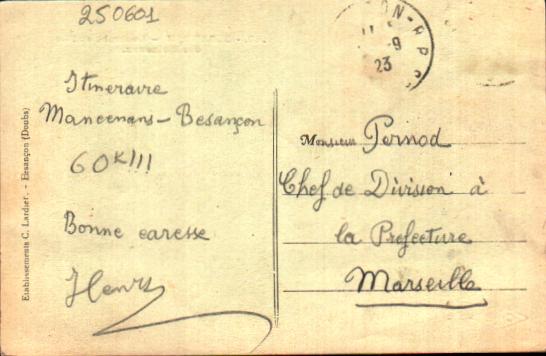 250601
-9
23
Itineraire
Mancenans - Besançon
60K!!!
Bonne caresse
Henry
Etablissements C. Lardier. - Besançon (Doubs)
Monsieur Pernod
Chef de Division à
la Prefecture
Marseille